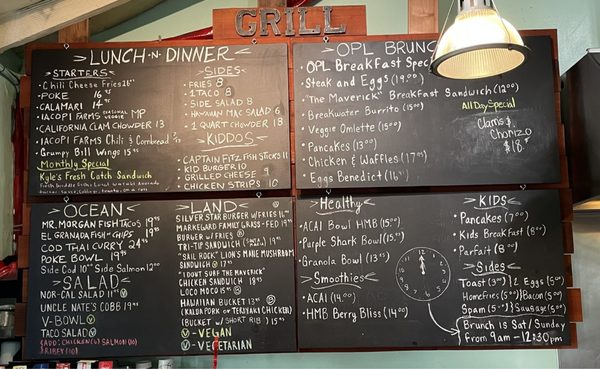 GRILL
LUNCH-N-DINNER
STARTERS
Chili Cheese Fries
POKE
CALAMARI
IACOPI FARMS MP
CALIFORNIA CLAM CHOWDER 13
IACOPI FARMS Chili & Cornbread
Grumpy Bill Wings 15
Monthly Special
Kyle's Fresh Catch Sandwich
SIDES
FRIES 8
1 TACO 8
SIDE SALAD 8
HAWAIIAN MAC SALAD 6
1 QUART CHOWDER 18
KIDDOS
CAPTAIN FITZ FISH STICKS 11
KID BURGER 10
GRILLED CHEESE 9
CHICKEN STRIPS 10
OPL BRUNCH
OPL Breakfast
Steak and Eggs (19.00)
"The Maverick" Breakfast Sandwich (12.00)
Breakwater Burrito (15.00)
Veggie Omlette (15.00)
Pancakes (13.00)
Chicken & Waffles (17.00)
Eggs Benedict
All Day Special
Clams &
Chorizo
$18
OCEAN
MR. MORGAN FISH TACOS 19.95
EL GRANADA FISH & CHIPS
COD THAI CURRY 24.95
POKE BOWL 19.95
Side Cod 10 Side Salmon 12.00
SALAD
NOR-CAL SALAD
UNCLE NATE'S COBB 19.95
V-BOWL V
TACO SALAD
LAND
SILVER STAR BURGER W/FRIES
MARKEGARD FAMILY GRASS-FED
BURGER W/FRIES
TRI-TIP SANDWICH
"SAIL ROCK" LION'S MANE MUSHROOM
SANDWICH
"I DONT SURF THE MAVERICK"
CHICKEN SANDWICH
LOCO MOCO
HAWAIIAN BUCKET
(KALUA PORK or TERIYAKI CHICKEN)
(BUCKET W/ SHORT RIB)
V - VEGAN
V - VEGETARIAN
Healthy
ACAI Bowl HMB (15.00)
Purple Shark Bowl (15.00)
Granola Bowl
Smoothies
ACAI (14.00)
HMB Berry Bliss (14.00)
KIDS
Pancakes (7.00)
Kids Breakfast (8.00)
Parfait (8.00)
Sides
Toast 2 Eggs
Homefries Bacon
Spam Sausage
Brunch is Sat/Sunday
From 9am - 12:30pm